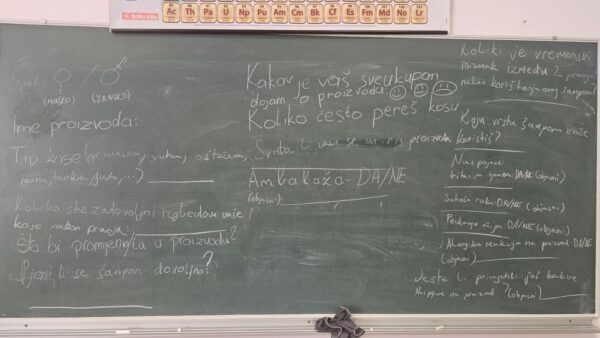 Ac Th Pa U Np Pu Am Cm Bk Cf Es Fm Md No Lr
Spol: ♀ / ♂
(MUŠKO) (ŽENSKO)
Ime proizvoda:
Tip kose (normalna, suha, oštećena,
ravna, tanka, gusta, ...)
Koliko ste zadovoljni izgledom vaše
kose nakon pranja:
Što bi promijenila u proizvodu?
Pjeni li se šampon dovoljno?
Kakav je vaš sveukupan
dojam o proizvodu:
Koliko često pereš kosu
Sviđa li vam se miris proizvoda
Ambalaža - DA/NE
(objasni)
Koliki je vremenski
razmak između 2 pranja
nakon korištenja ovog šampona?
Koju vrstu šampona inače
koristiš?
Nus pojave:
DA/NE (objasni)
Suhoća DA/NE (objasni)
DA/NE (objasni)
Alergijska reakcija na proizvod DA/NE
(objasni)
Jeste li primijetili još kakve
nuspojave na proizvod? (objasni)